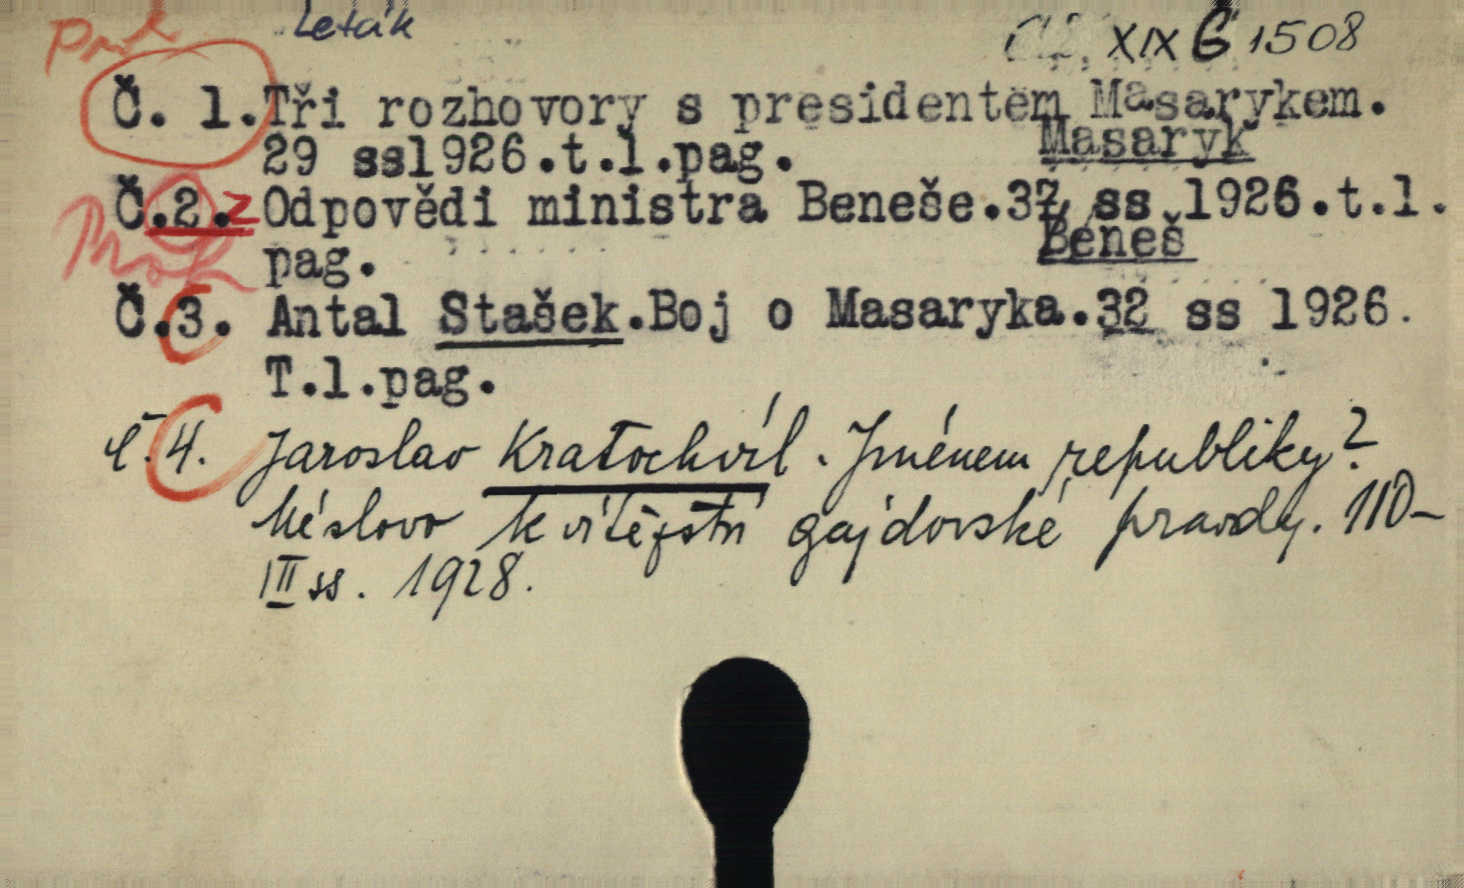 Leták XIX G 1508
Č. 1. Tři rozhovory s presidentem Masarykem.
Masaryk
29 ss 1926.t.l.pag.
Č.2. z Odpovědi ministra Beneše.37 ss 1926.t.l.
Beneš
pag.
Č.3. Antal Stašek.Boj o Masaryka.32 ss 1926.
T.l.pag.
č.4. Jaroslav Kratochvíl. Jménem republiky?
Mé slovo k vítězství gajdovské pravdy. 110-
III ss. 1928.